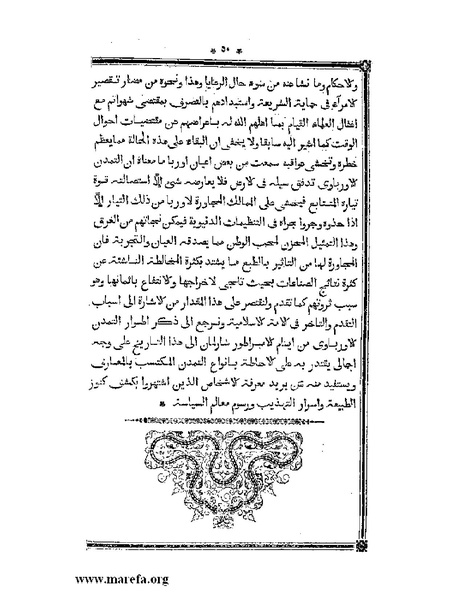 * ٥٠ *
ولاحكام وما نشا عنه من سوء حال الرعايا وهذا ونحوه من مضار تقصير
لامرآء في حماية الشريعة واستبدادهم بالتصرف بمقتضى شهواتهم مع
اغفال العلماء القيام بما اهلهم الله له باعراضهم عن مقتضيات احوال
الوقت كما اشير اليه سابقا ولا يخفى ان البقاء على هذه الحالة مما يعظم
خطره وتخشى عواقبه سمعت من بعض اعيان اوربا ما معناه ان التمدن
لاورباوى تدفق سيله فى لارض فلا يعارضه شىء الا استاصلته قوة
تياره المتتابع فيخشى على الممالك المجاورة لاوربا من ذلك التيار الا
اذا حذوه وجروا مجراه فى التنظيمات الدنيوية فيمكن نجاتهم من الغرق
وهذا التمثيل المحزن لمحب الوطن مما يصدقه العيان والتجربة فان
المجاورة لها من التاثير بالطبع ما يشتد بكثرة المخالطة الناشئة عن
كثرة نتائج الصناعات بحيث تلجى لاخراجها ولانتفاع باثمانها وهو
سبب ثروتهم كما تقدم ولنقتصر على هذا المقدار من لاشارة الى اسباب
التقدم والتاخر فى لامة لاسلامية ونرجع الى ذكر اطوار التمدن
لاورباوى من ايام لامبراطور شارلمان الى هذا التاريخ على وجه
اجمالى يقتدر به على لاحاطة بانواع التمدن المكتسب بالمعارف
ويستفيد منه من يريد معرفة لاشخاص الذين اشتهروا بكشف كنوز
الطبيعة واسرار التهذيب ورسوم معالم السياسة *
www.marefa.org